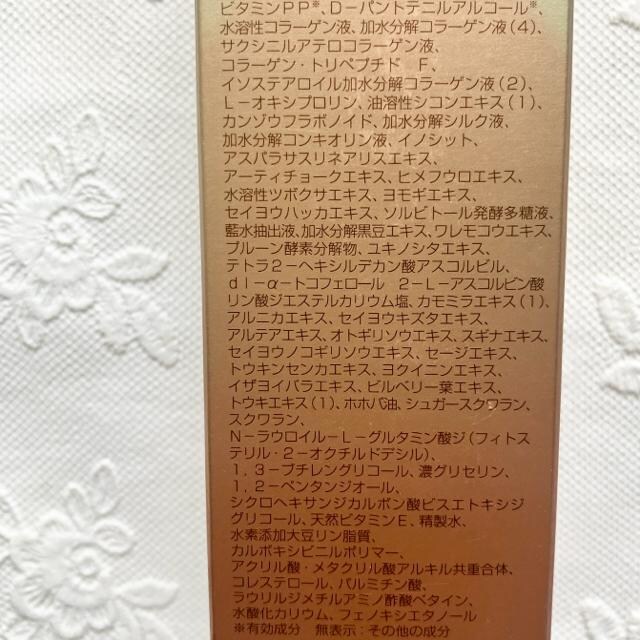 ビタミンPP※、D−パントテニルアルコール※、
水溶性コラーゲン液、加水分解コラーゲン液(4)、
サクシニルアテロコラーゲン液、
コラーゲン・トリペプチド F、
イソステアロイル加水分解コラーゲン液(2)、
L−オキシプロリン、油溶性シコンエキス(1)、
カンゾウフラボノイド、加水分解シルク液、
加水分解コンキオリン液、イノシット、
アスパラサスリネアリスエキス、
アーティチョークエキス、ヒメフウロエキス、
水溶性ツボクサエキス、ヨモギエキス、
セイヨウハッカエキス、ソルビトール発酵多糖液、
藍水抽出液、加水分解黒豆エキス、ワレモコウエキス、
プルーン酵素分解物、ユキノシタエキス、
テトラ2−ヘキシルデカン酸アスコルビル、
dl−α−トコフェロール 2−L−アスコルビン酸
リン酸ジエステルカリウム塩、カモミラエキス(1)、
アルニカエキス、セイヨウキズタエキス、
アルテアエキス、オトギリソウエキス、スギナエキス、
セイヨウノコギリソウエキス、セージエキス、
トウキンセンカエキス、ヨクイニンエキス、
イザヨイバラエキス、ビルベリー葉エキス、
トウキエキス(1)、ホホバ油、シュガースクワラン、
スクワラン、
N−ラウロイル−L−グルタミン酸ジ(フィトス
テリル・2−オクチルドデシル)、
1,3−ブチレングリコール、濃グリセリン、
1,2−ペンタンジオール、
シクロヘキサンジカルボン酸ビスエトキシジ
グリコール、天然ビタミンE、精製水、
水素添加大豆リン脂質、
カルボキシビニルポリマー、
アクリル酸・メタクリル酸アルキル共重合体、
コレステロール、パルミチン酸、
ラウリルジメチルアミノ酢酸ベタイン、
水酸化カリウム、フェノキシエタノール
※有効成分 無表示:その他の成分